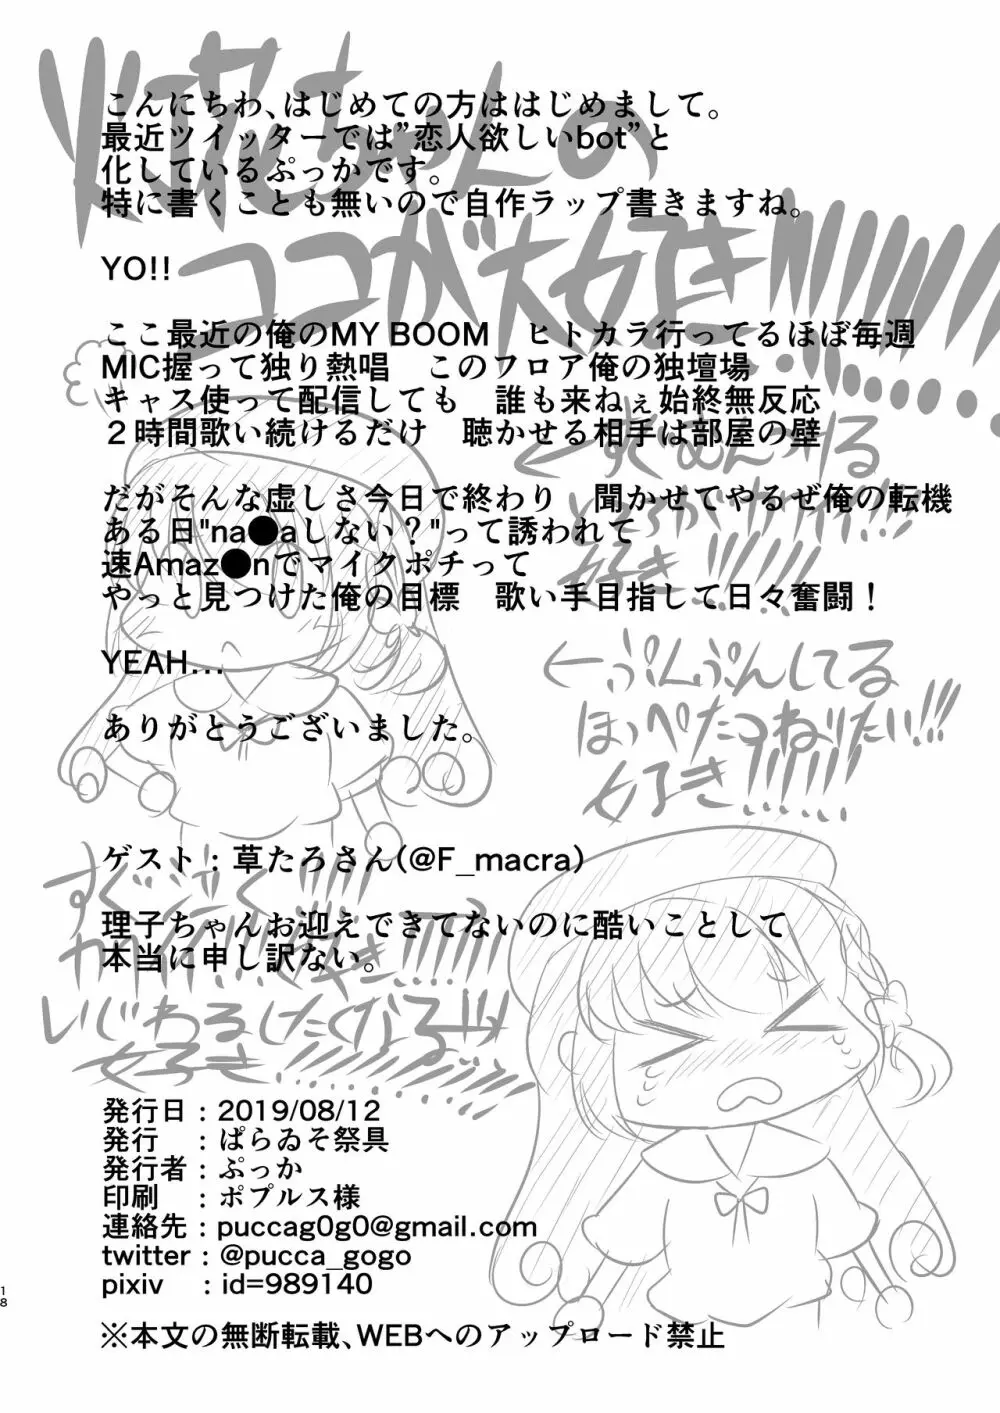 火花ちゃんの
ココが大好き!!!!!!!!
こんにちわ、はじめての方ははじめまして。
最近ツイッターでは”恋人欲しいbot”と
化しているぷっかです。
特に書くことも無いので自作ラップ書きますね。
YO!!
ここ最近の俺のMY BOOM　ヒトカラ行ってるほぼ毎週
MIC握って独り熱唱　このフロア俺の独壇場
キャス使って配信しても　誰も来ねぇ始終無反応
２時間歌い続けるだけ　聴かせる相手は部屋の壁
だがそんな虚しさ今日で終わり　聞かせてやるぜ俺の転機
ある日"na●aしない？"って誘われて
速Amaz●nでマイクポチって
やっと見つけた俺の目標　歌い手目指して日々奮闘！
YEAH...
ありがとうございました。
←すぐむくれる
ところがカワイイ!!!
好き!!!!!!
←ぷんぷんしてる
ほっぺたつねりたい!!!
好き!!!!!!
ゲスト：草たろさん(@F_macra)
理子ちゃんお迎えできてないのに酷いことして
本当に申し訳ない。
いじわるしたくなるッッ
好き
発行日：2019/08/12
発行　：ぱらゐそ祭具
発行者：ぷっか
印刷　：ポプルス様
連絡先：puccag0g0@gmail.com
twitter：@pucca_gogo
pixiv　：id=989140
※本文の無断転載、WEBへのアップロード禁止
18